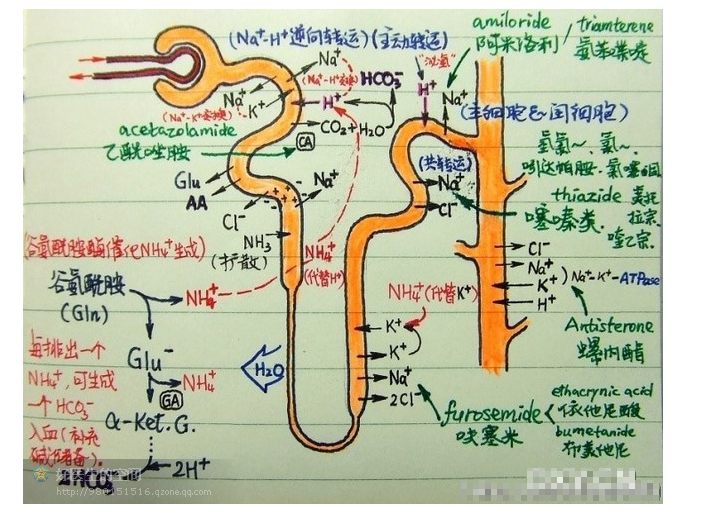 (Na⁺-H⁺逆向转运)(主动转运)
Na⁺
(Na⁺-H⁺交换)
HCO₃⁻
H⁺
Na⁺
K⁺
(Na⁺-K⁺交换)
CO₂+H₂O
CA
acetazolamide
乙酰唑胺
Glu
AA
Na⁺
Cl⁻
NH₃
(扩散)
NH₄⁺
(代替H⁺)
"泌氢"
H⁺
Na⁺
amiloride
阿米洛利/
triamterene
氨苯喋啶
(主细胞 闰细胞)
氢氯~、氯~、
吲达帕胺、氯噻酮
thiazide
噻嗪类
美托
拉宗、
喹乙宗.
(共转运)
Na⁺
Cl⁻
Cl⁻
Na⁺
K⁺
H⁺
Na⁺-K⁺-ATPase
Antisterone
螺内酯
NH₄⁺(代替K⁺)
K⁺
K⁺
Na⁺
2Cl⁻
furosemide
呋塞米
ethacrynic acid
依他尼酸
bumetanide
布美他尼
H₂O
(谷氨酰胺酶催化NH₄⁺生成)
谷氨酰胺
(Gln)
NH₄⁺
Glu⁻
NH₄⁺
GA
α-Ket.G.
2H⁺
2HCO₃⁻
每排出一个
NH₄⁺,可生成
一个HCO₃⁻
入血(补充
碱储备).
http://980151516.qzone.qq.com
DXY.CN